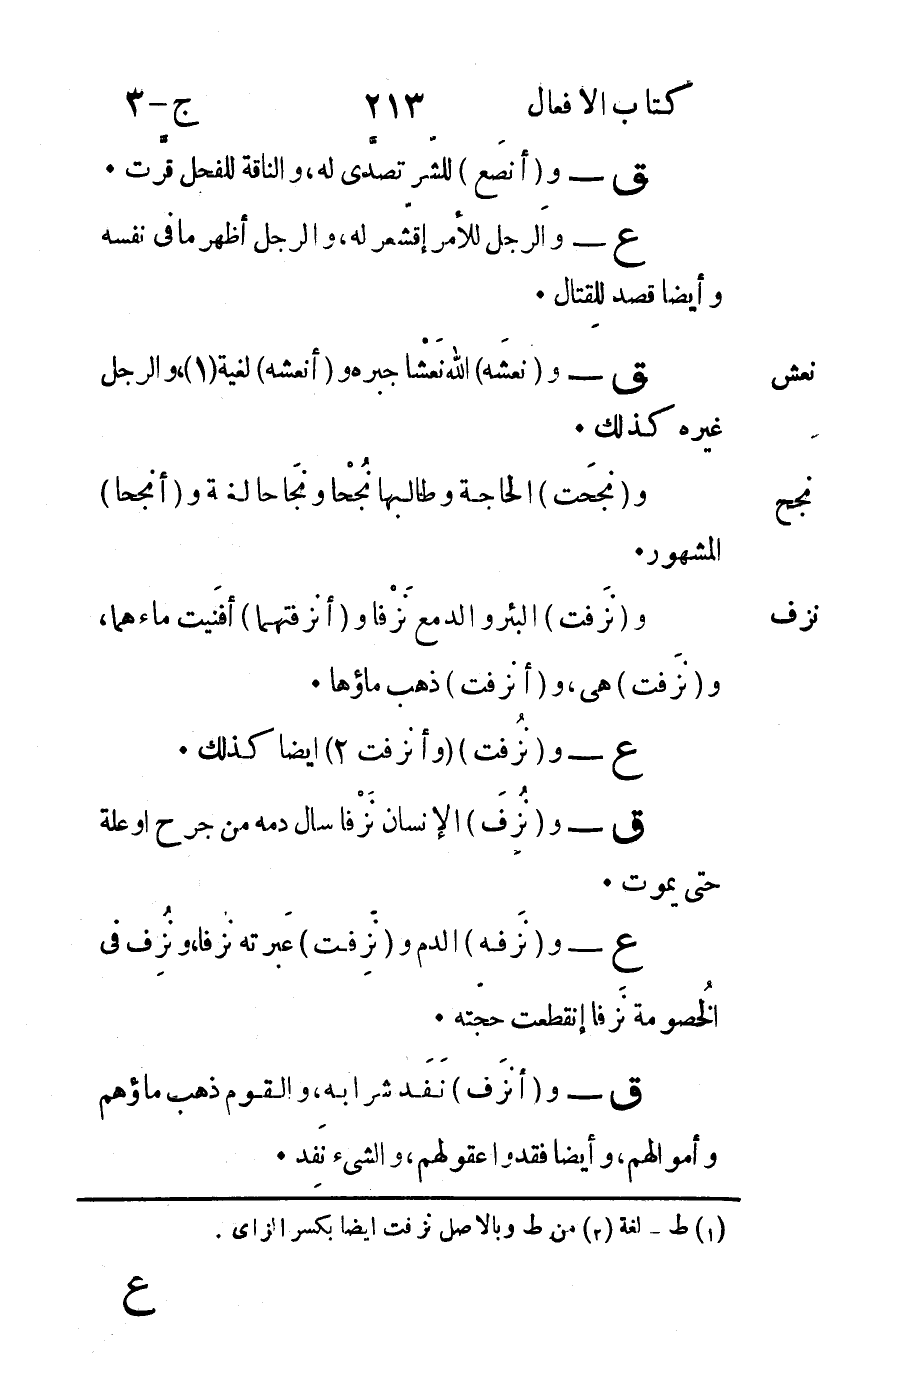 كتاب الافعال ٢١٣ ج-٣
ق — و (أنصَع) للشّر تصدّى له، و الناقة للفحل قرّت •
ع — و الرجل للأمر إقشعر له، و الرجل أظهر ما فى نفسه
و أيضا قصد للقتال •
نعش ق — و (نعشَه) الله نَعْشا جبره و (أنعشه) لغية(١)، و الرجل
غيره كذلك •
نجح و (نجَحت) الحاجة و طالبها نُجْحا و نجَاحا لغة و (أنجحا)
المشهور •
نزف و (نزَفت) البئر و الدمع نَزْفا و (أنزفتهما) أفنَيت ماءهما،
و (نزَفت) هى، و (أنزفت) ذهب ماؤها •
ع — و (نُزفت) (و أنزفت ٢) ايضا كذلك •
ق — و (نُزِفَ) الإنسان نَزْفا سال دمه من جرح او علة
حتى يموت •
ع — و (نزَفه) الدم و (نزِفت) عَبرته نزفا، و نُزِف فى
الخُصومة نَزفا إنقطعت حجّته •
ق — و (أنزَف) نَفَد شرابه، و القوم ذهب ماؤهم
و أموالهم، و أيضا فقدوا عقولهم، و الشىء نَفِد •
(١) ط - لغة (٢) من ط وبالاصل نزفت ايضا بكسر الزاى .
ع